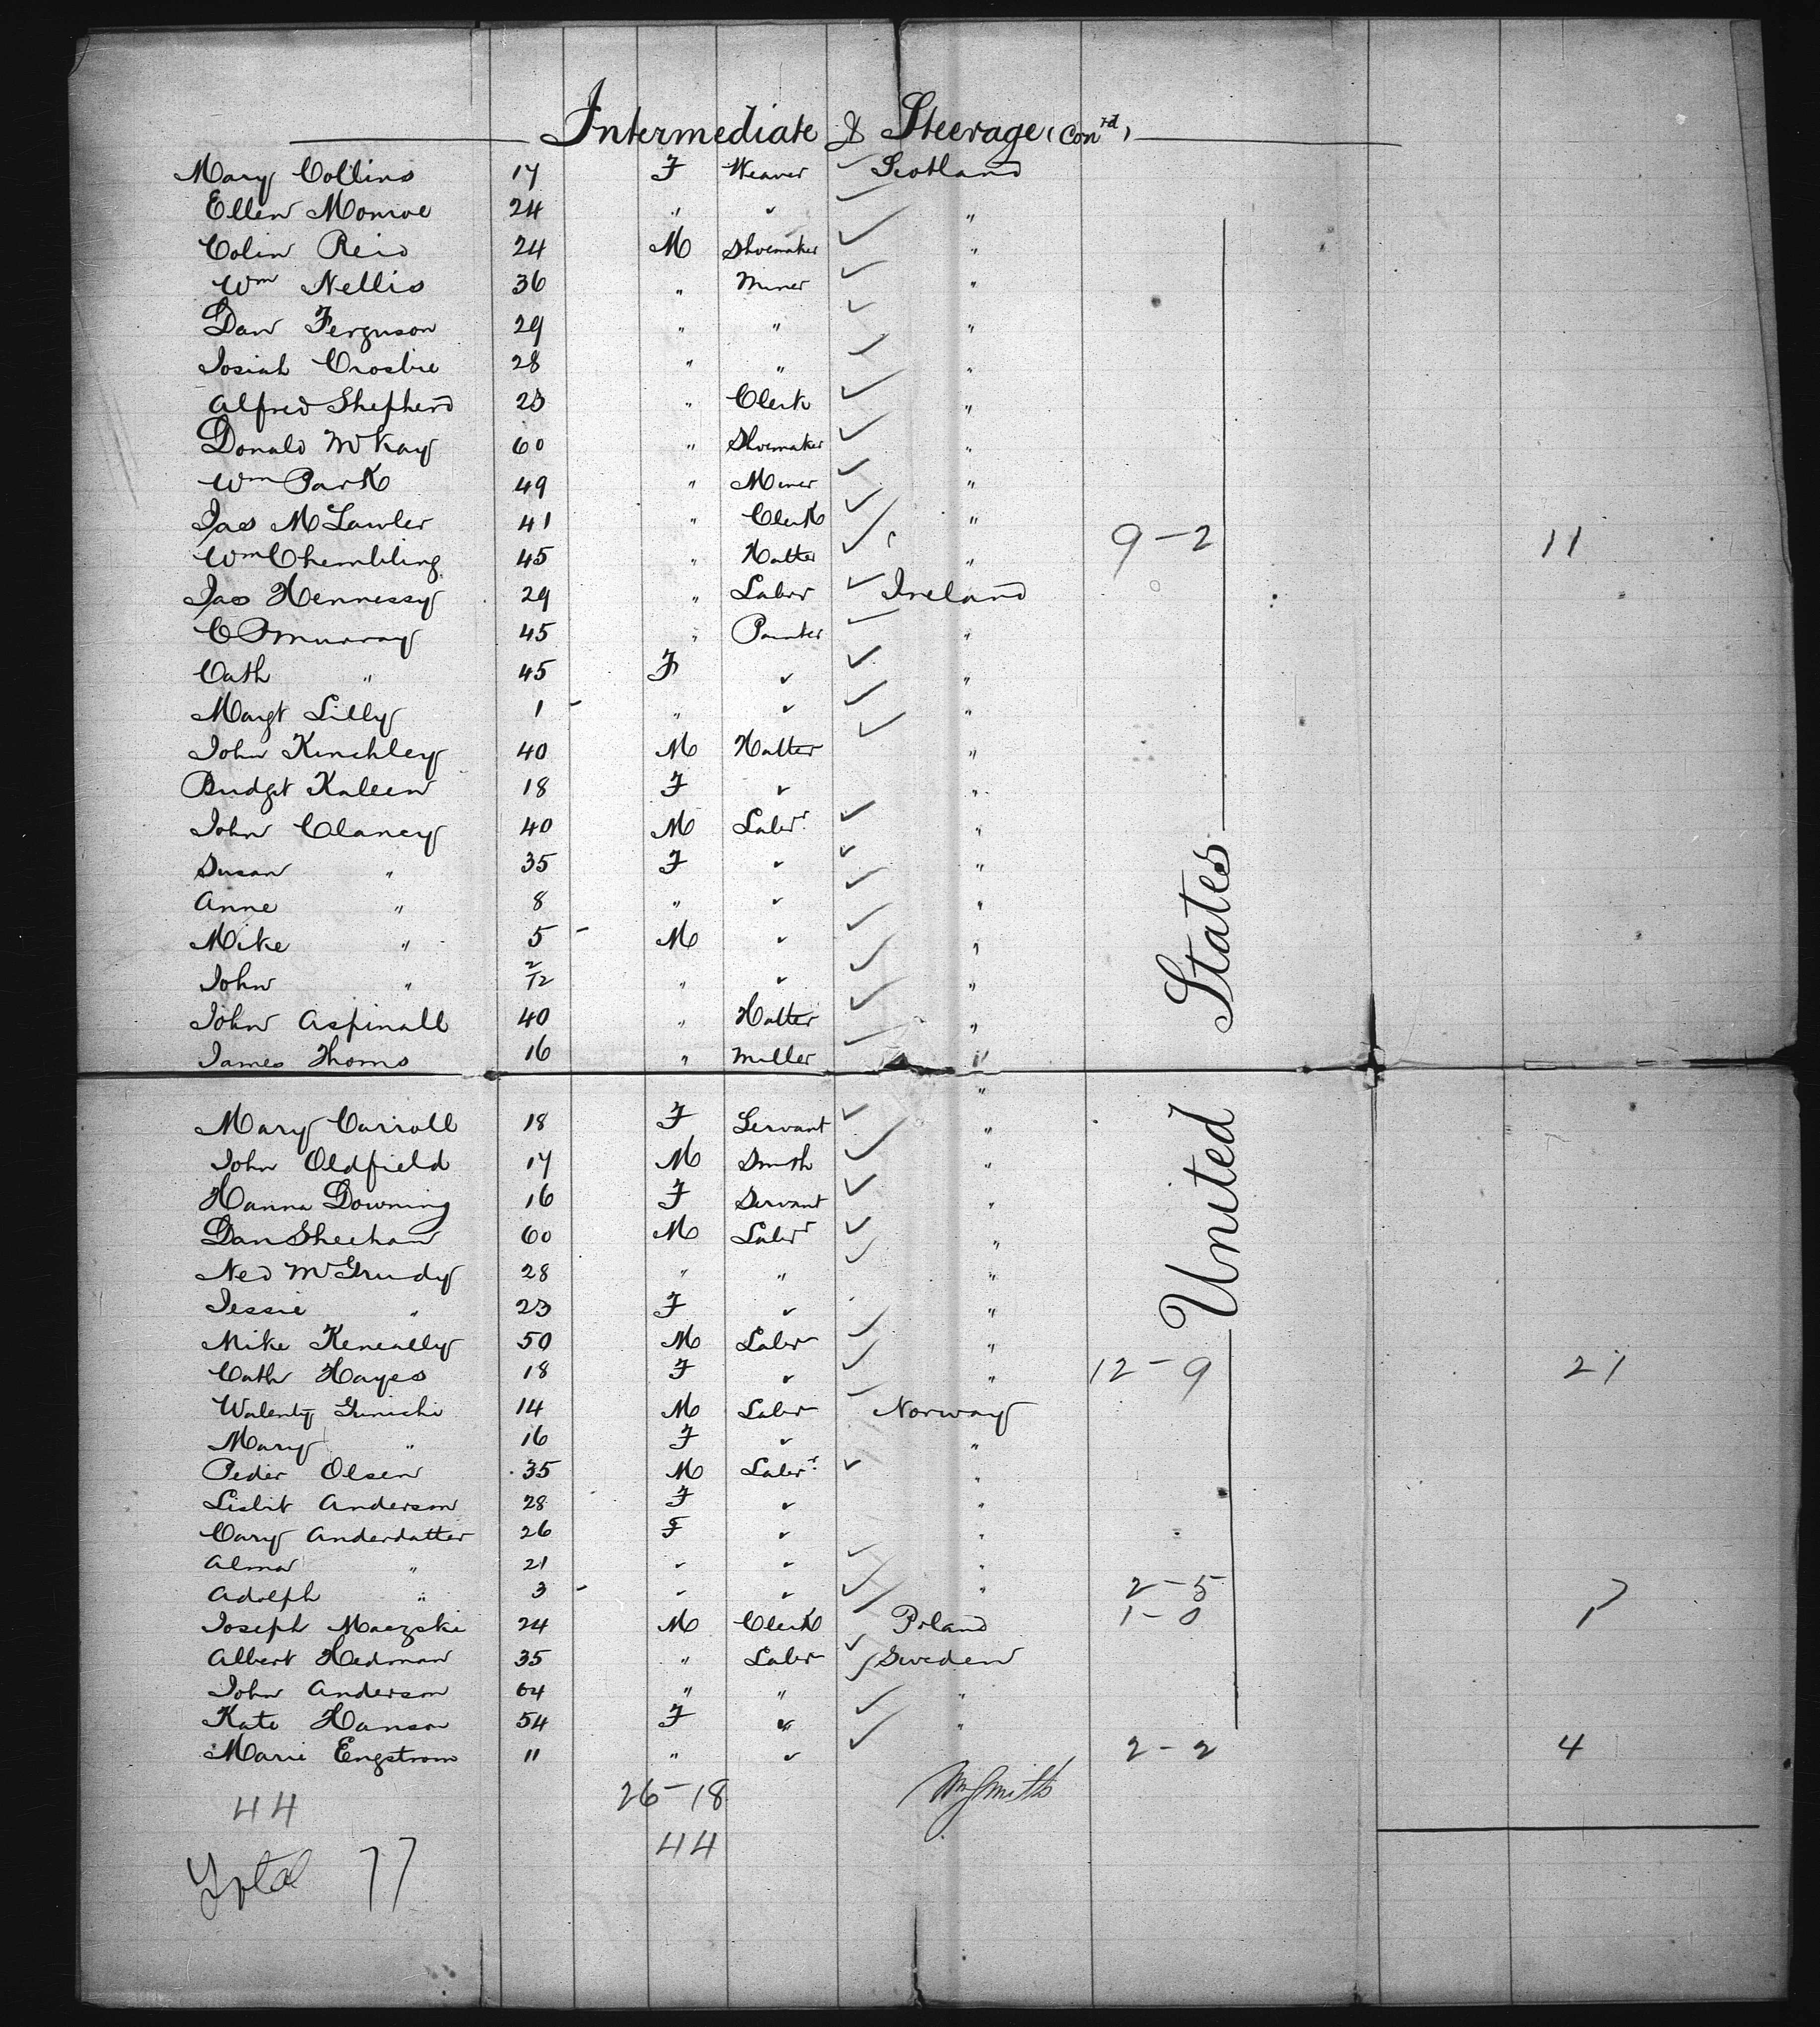 Intermediate & Steerage (Contd)
Mary Collins 17 F Weaver ✓ Scotland
Ellen Monroe 24 " ✓ ✓ "
Colin Reid 24 M Shoemaker ✓ "
Wm Nellis 36 " Miner ✓ "
Dan Ferguson 29 " " ✓ "
Josiah Crosbie 28 " " ✓ "
Alfred Shepherd 23 " Clerk ✓ "
Donald McKay 60 " Shoemaker ✓ "
Wm Park 49 " Miner ✓ "
Jas McLawler 41 " Clerk ✓ "
Wm Chembling 45 " Hatter ✓ " 9-2 11
Jas Hennessy 29 " Labor ✓ Ireland
C P Murray 45 " Painter ✓ "
Cath " 45 F ✓ ✓ "
Margt Lilly 1 - " ✓ ✓ "
John Kinchley 40 M Hatter ✓ "
Bridgt Kaleen 18 F ✓ "
John Clancy 40 M Labr ✓ "
Susan " 35 F ✓ ✓ "
Anne " 8 " ✓ ✓ "
Mike " 5 - M ✓ ✓ "
John " 2/12 " ✓ ✓ "
John Aspinall 40 " Hatter ✓ "
James Thoms 16 " Miller ✓ "
"
Mary Carroll 18 F Servant ✓ "
John Oldfield 17 M Smith ✓ "
Hanna Downing 16 F Servant ✓ "
Dan Sheehan 60 M Labr ✓ "
Ned McGrudy 28 " " ✓ "
Jessie " 23 F ✓ "
Mike Keneally 50 M Labr ✓ "
Cath Hayes 18 F ✓ ✓ " 12-9 21
Walenty 14 M Labr ✓ Norway
Mary " 16 F ✓ "
Peder Olsen 35 M Labr ✓ "
Lisbit Anderson 28 F ✓ "
Cary Anderdatter 26 F ✓ "
Alma " 21 " ✓ ✓ "
Adolph " 3 - " ✓ ✓ " 2-5 7
Joseph Maczski 24 M Clerk Poland 1-0 1
Albert Hedman 35 " Labr ✓ Sweden
John Anderson 64 " " ✓ "
Kate Hanson 54 F ✓ ✓ "
Marie Engstrom 11 " ✓ 2-2 4
United States
44 26-18 Wm Smith
44
Total 77